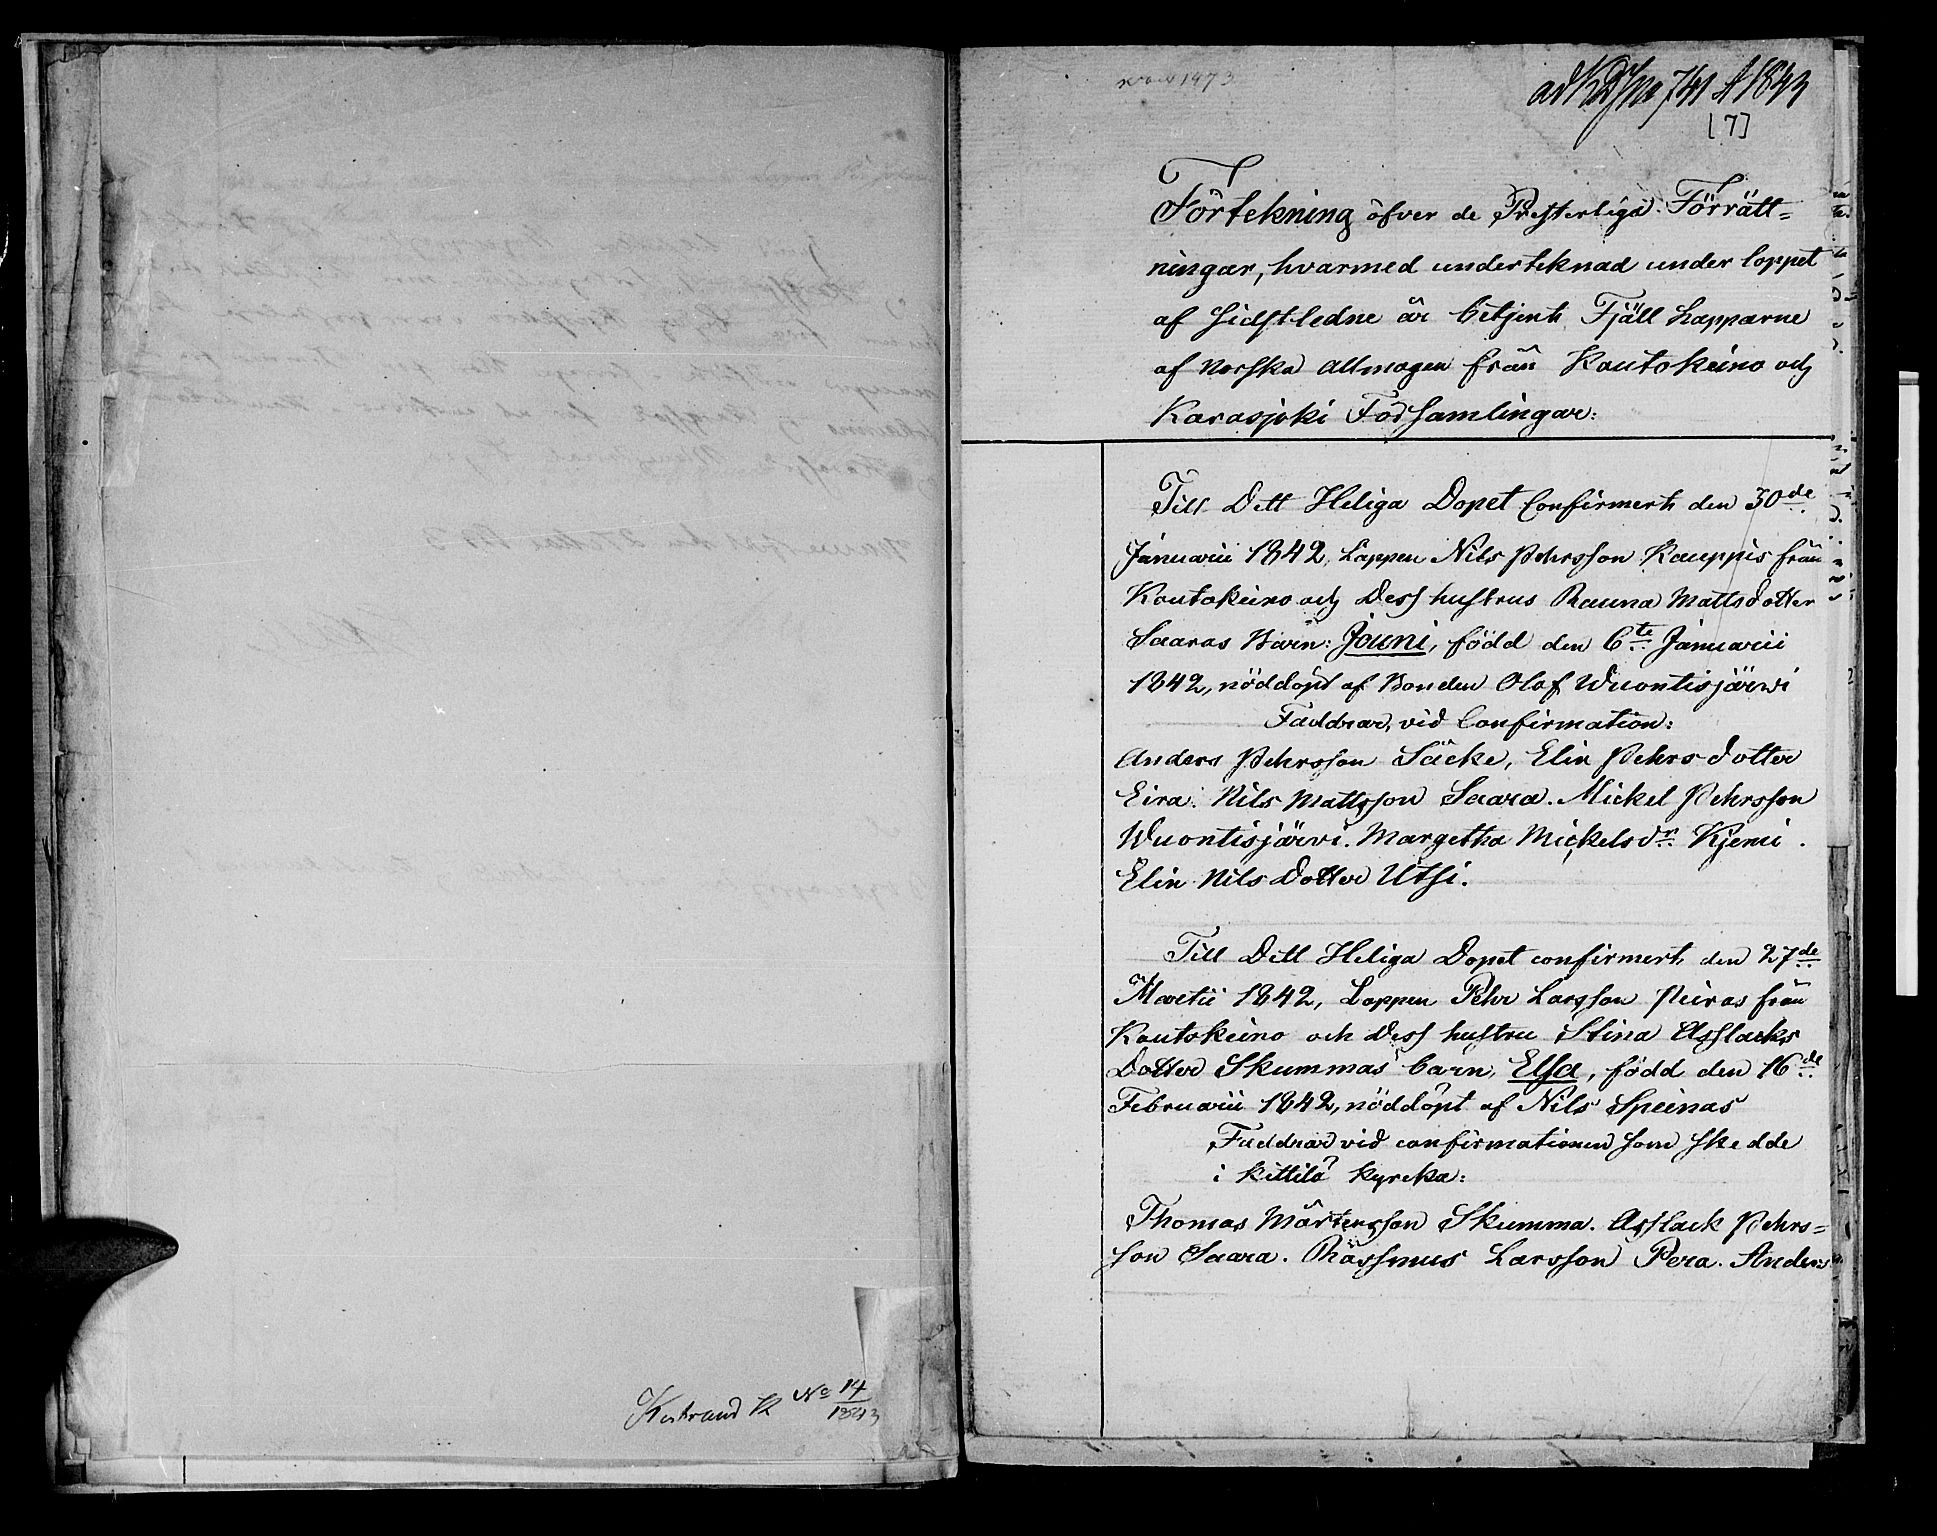 Kistrand K No 14
1843
741 A 1843
[7]
Förtekning öfver de Presterliga Förrätt=
ningar, hvarmed underteknad under loppet
af sidstledne år betjent Fjäll Lapparne
af Norska Allmogen från Kautokeino och
Karasjoki Församlingar:
Till Dett Heliga Dopet Confirmert den 30de
Januarii 1842, Lappen Nils Pehrsson Kauppis från
Kautokeino och Dess hustrus Rauna Mattsdotter
Saaras Barn: Jouni, född den 6te Januarii
1842, nöddöpt af Bonden Olof Wuontisjärwi
Faddrar, vid Confirmation:
Anders Pehrsson Säcke, Elin Pehrs dotter
Eira. Nils Mattsson Saara. Mickel Pehrsson
Wuontisjärvi. Margetha Mickelsdr. Kjemi.
Elin Nils Dotter Utsi.
Till Dett Heliga Dopet confirmert den 27de
Martii 1842, Lappen Pehr Larsson Peiras från
Kautokeino och Dess hustru Stina Asslacks
Dotter Skummas barn, Elsa, född den 16de
Februarii 1842, nöddöpt af Nils Speinas
Faddrar vid confirmationen som skedde
i Kittilä Kyrcka:
Thomas Mårtensson Skumma. Asslack Pehrs=
son Saara. Rássmus Larsson Pera. Anders